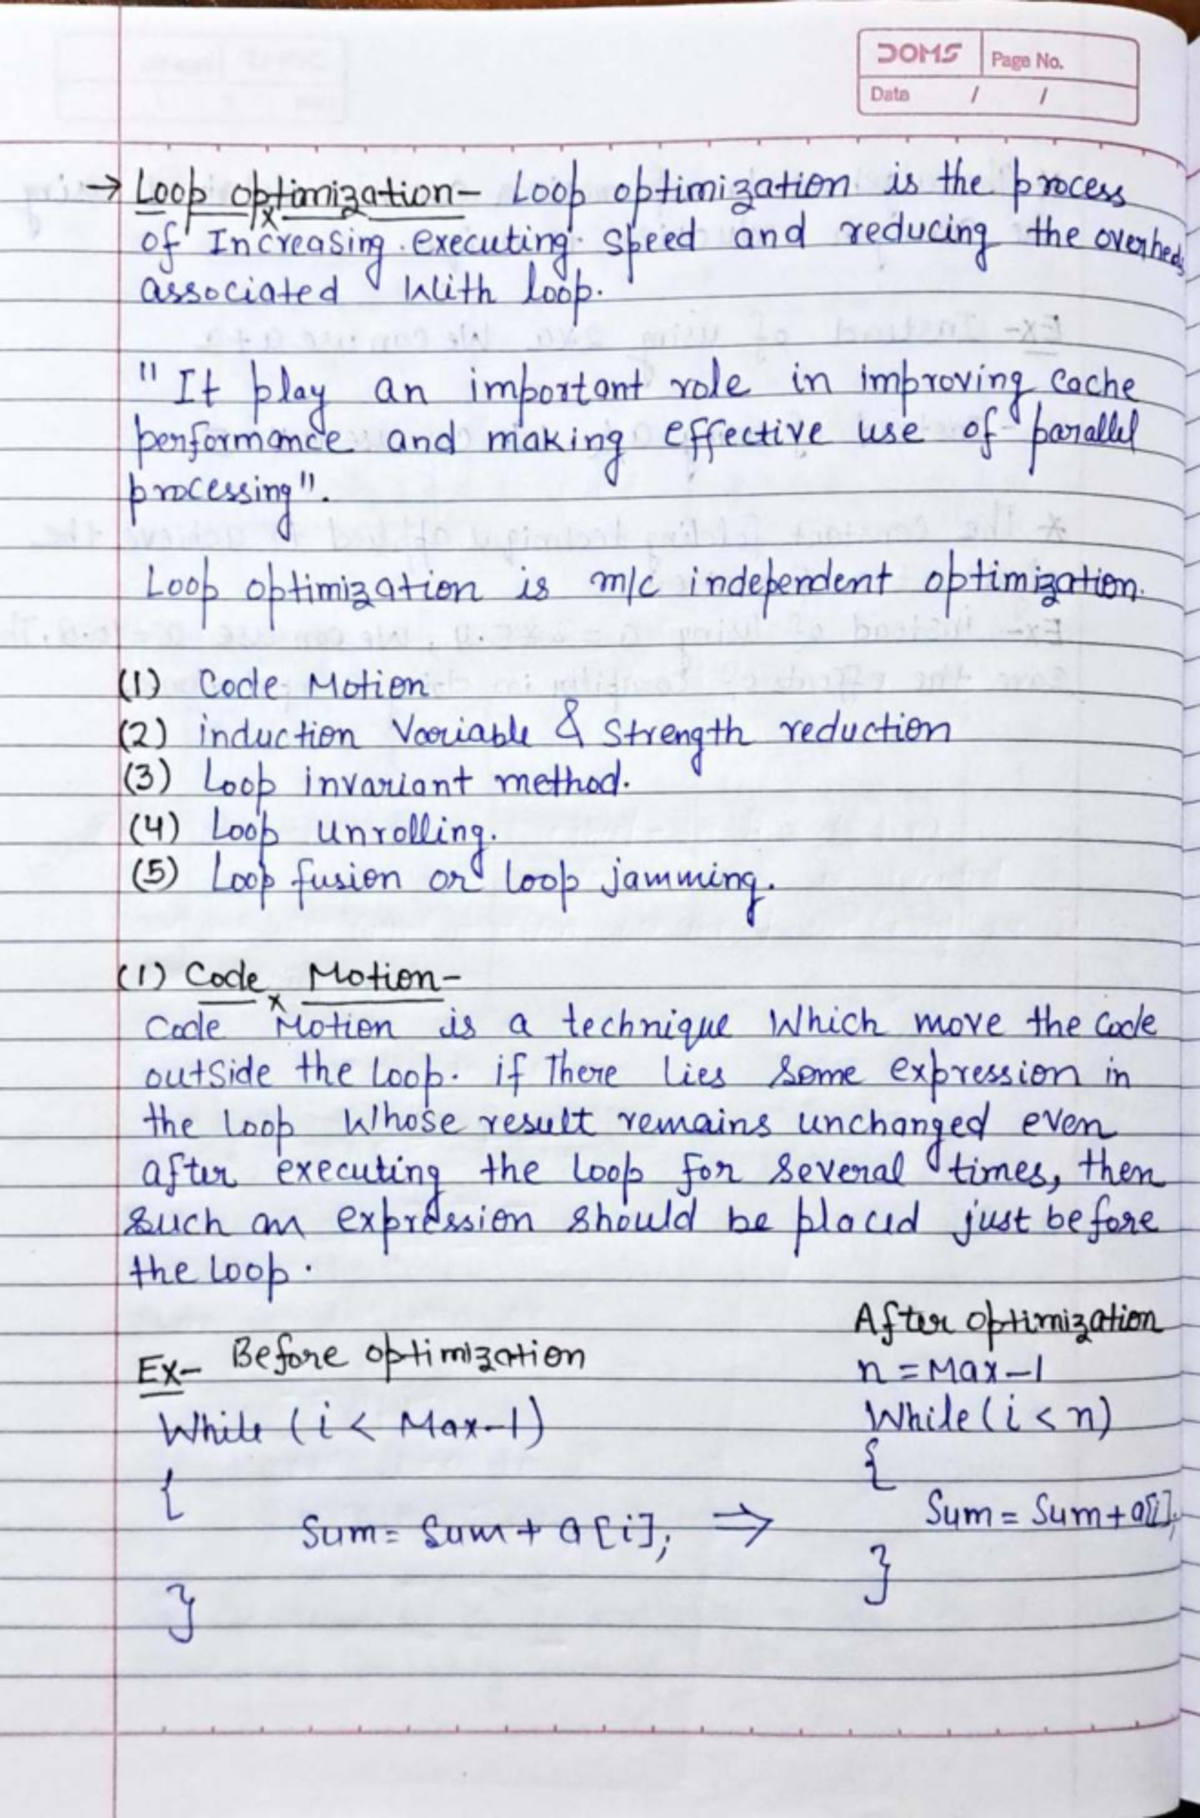 DOMS Page No.
Date / /
→ Loop optimization - Loop optimization is the process
of Increasing executing speed and reducing the overheds
associated With loop.
"It play an important role in improving Cache
performance and making effective use of parallel
processing".
Loop optimization is m/c independent optimization.
(1) Code Motion
(2) induction Variable & Strength reduction
(3) Loop invariant method.
(4) Loop unrolling.
(5) Loop fusion or loop jamming.
(1) Code Motion-
Code Motion is a technique Which move the code
outside the loop. if There lies some expression in
the loop Whose result remains unchanged even
after executing the loop for several times, then
such an expression should be placed just before
the loop.
Ex- Before optimization
While (i < Max-1)
{
Sum = Sum + a[i]; ⇒
}
After optimization
n = Max-1
While (i < n)
{
Sum = Sum + a[i];
}